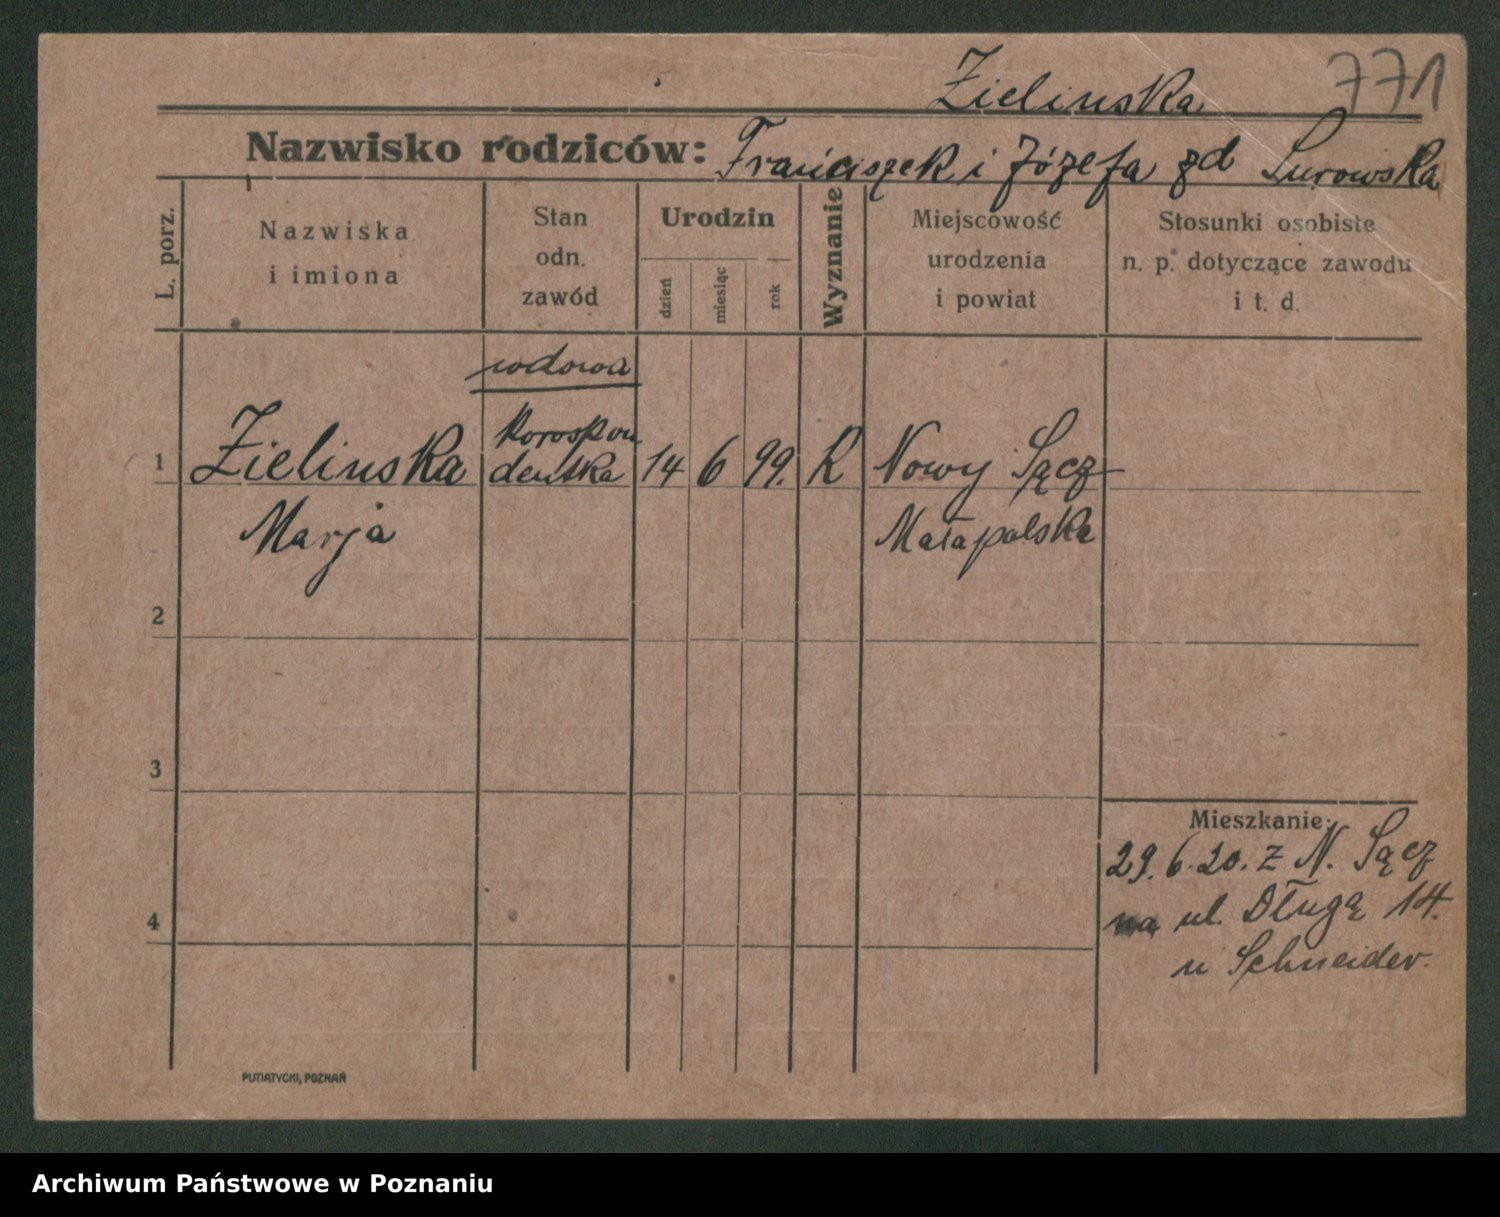 Zielinska 771
Nazwisko rodziców: Franciszek i Józefa zd Surowska
L. porz.
Nazwiska
i imiona
Stan
odn.
zawód
Urodzin
dzień
miesiąc
rok
Wyznanie
Miejscowość
urodzenia
i powiat
Stosunki osobiste
n. p. dotyczące zawodu
i t. d.
wdowa
korospon
1 Zielinska dentka 14 6 99. R Nowy Sącz
Marja Małapolska
2
3
Mieszkanie:
29. 6. 20. z N. Sącz
4 na ul. Długą 14.
u Schneider.
PUTIATYCKI, POZNAŃ
Archiwum Państwowe w Poznaniu